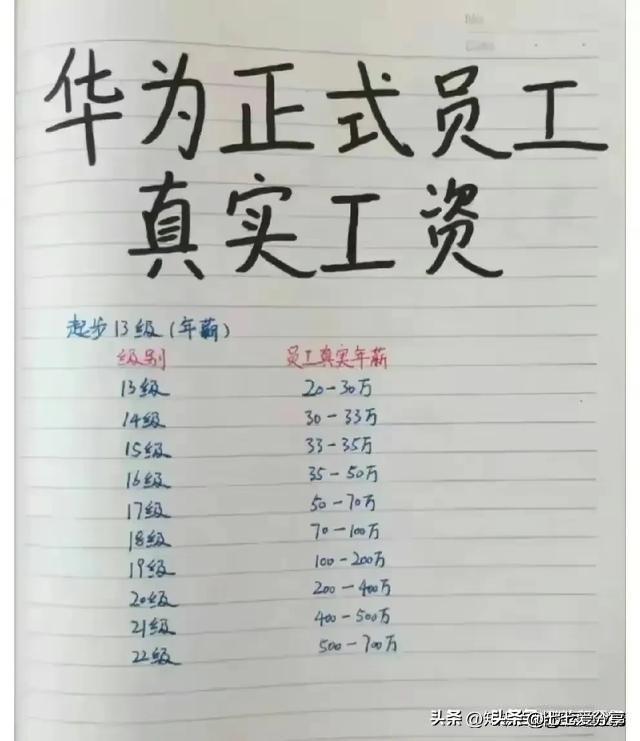 No.
Date
华为正式员工
真实工资
起步13级(年薪)
级别 员工真实年薪
13级 20-30万
14级 30-33万
15级 33-35万
16级 35-50万
17级 50-70万
18级 70-100万
19级 100-200万
20级 200-400万
21级 400-500万
22级 500-700万
头条